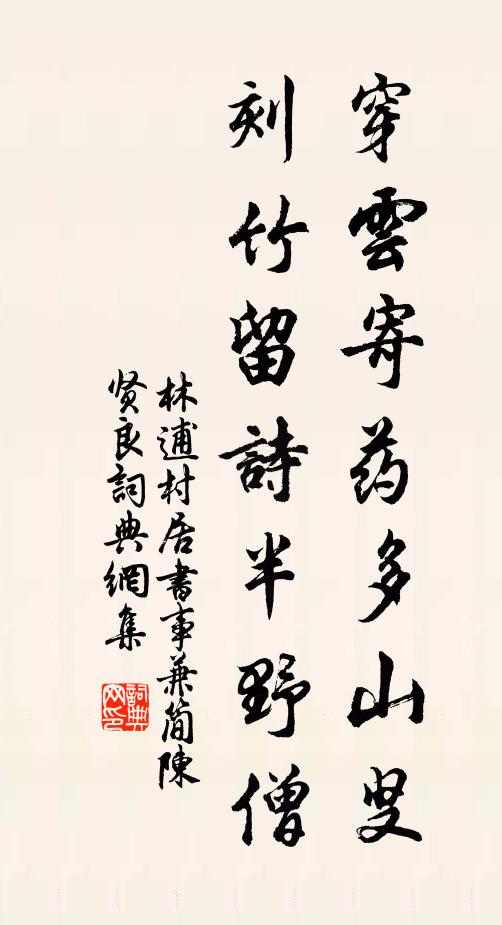 穿雲寄药多山叟
刻竹留詩半野僧
林逋村居書事兼簡陳
贤良詞典網集
詞典网印